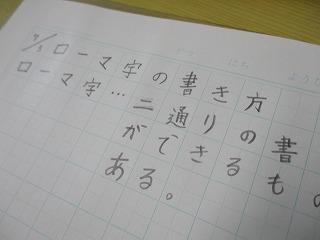 ローマ字の書き方
ローマ字…二通りの書
ができるもの
ある。